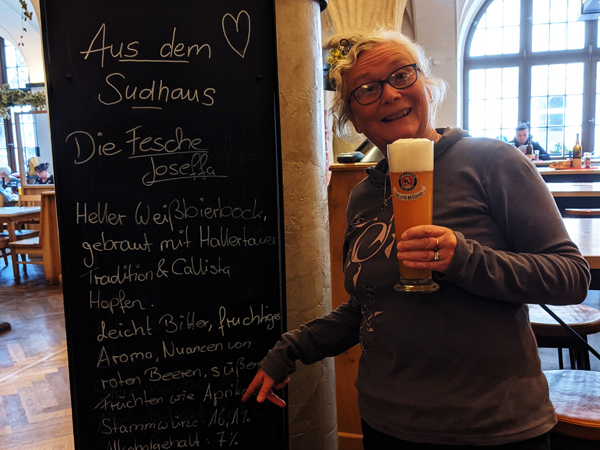 Aus dem
Sudhaus
Die Fesche
Joseffa
Heller Weißbierbock,
gebraut mit Hallertauer
Tradition & Callista
Hopfen.
Leicht Bitter, fruchtiges
Aroma, Nuancen von
roten Beeren, süßen
Früchten wie
Stammwürze: 16,1%
Alkoholgehalt: 7%